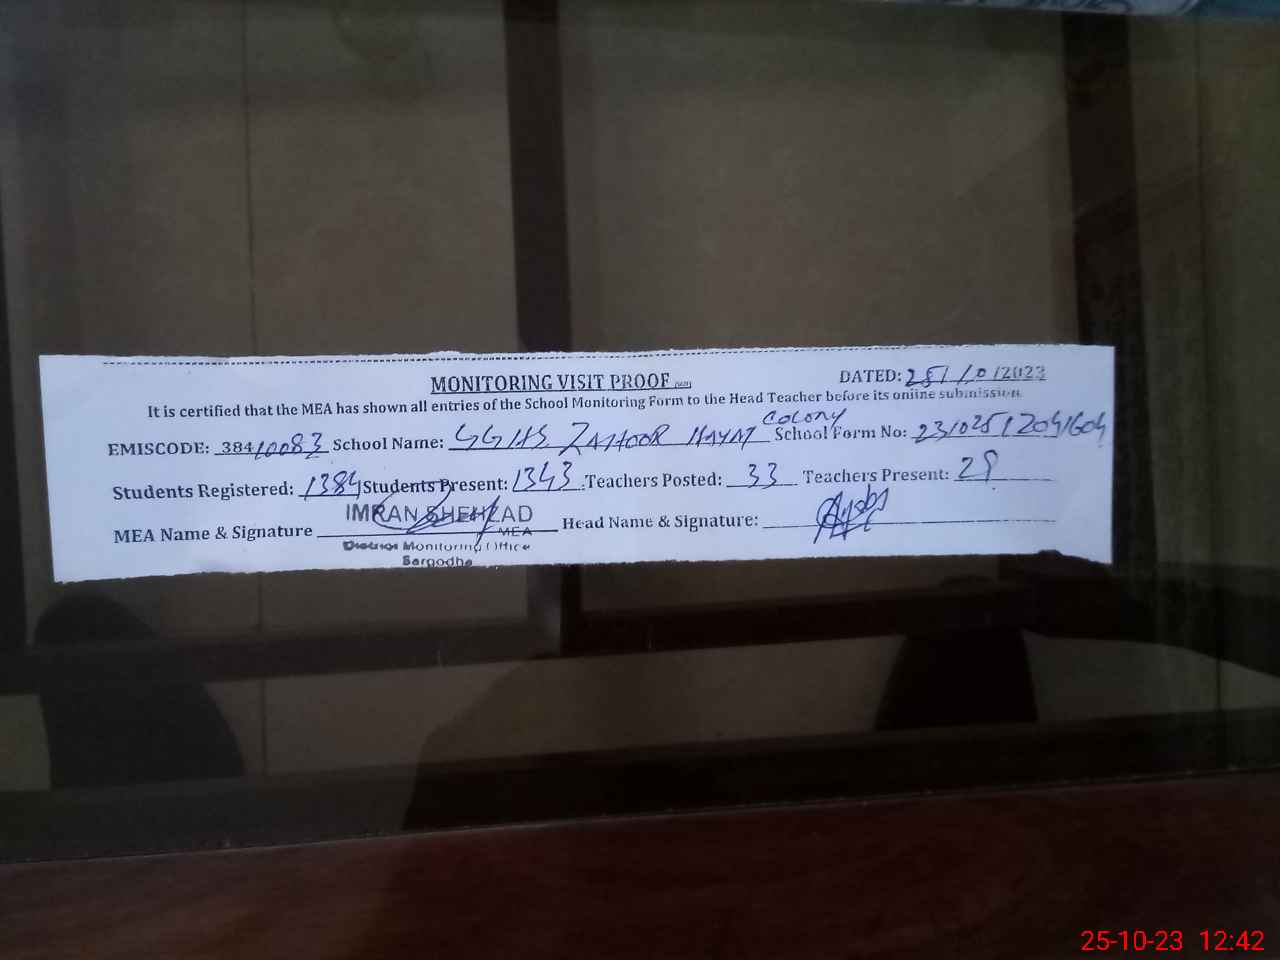 MONITORING VISIT PROOF
DATED: 25/10/2023
It is certified that the MEA has shown all entries of the School Monitoring Form to the Head Teacher before its online submission.
EMISCODE: 38410083 School Name: GGHS ZAHOOR HAYAT COLONY School Form No:
Students Registered: 1384 Students Present: 1343 Teachers Posted: 33 Teachers Present:
MEA Name & Signature IMRAN SHEHZAD Head Name & Signature:
MEA
District Monitoring Office
Sargodha
25-10-23 12:42